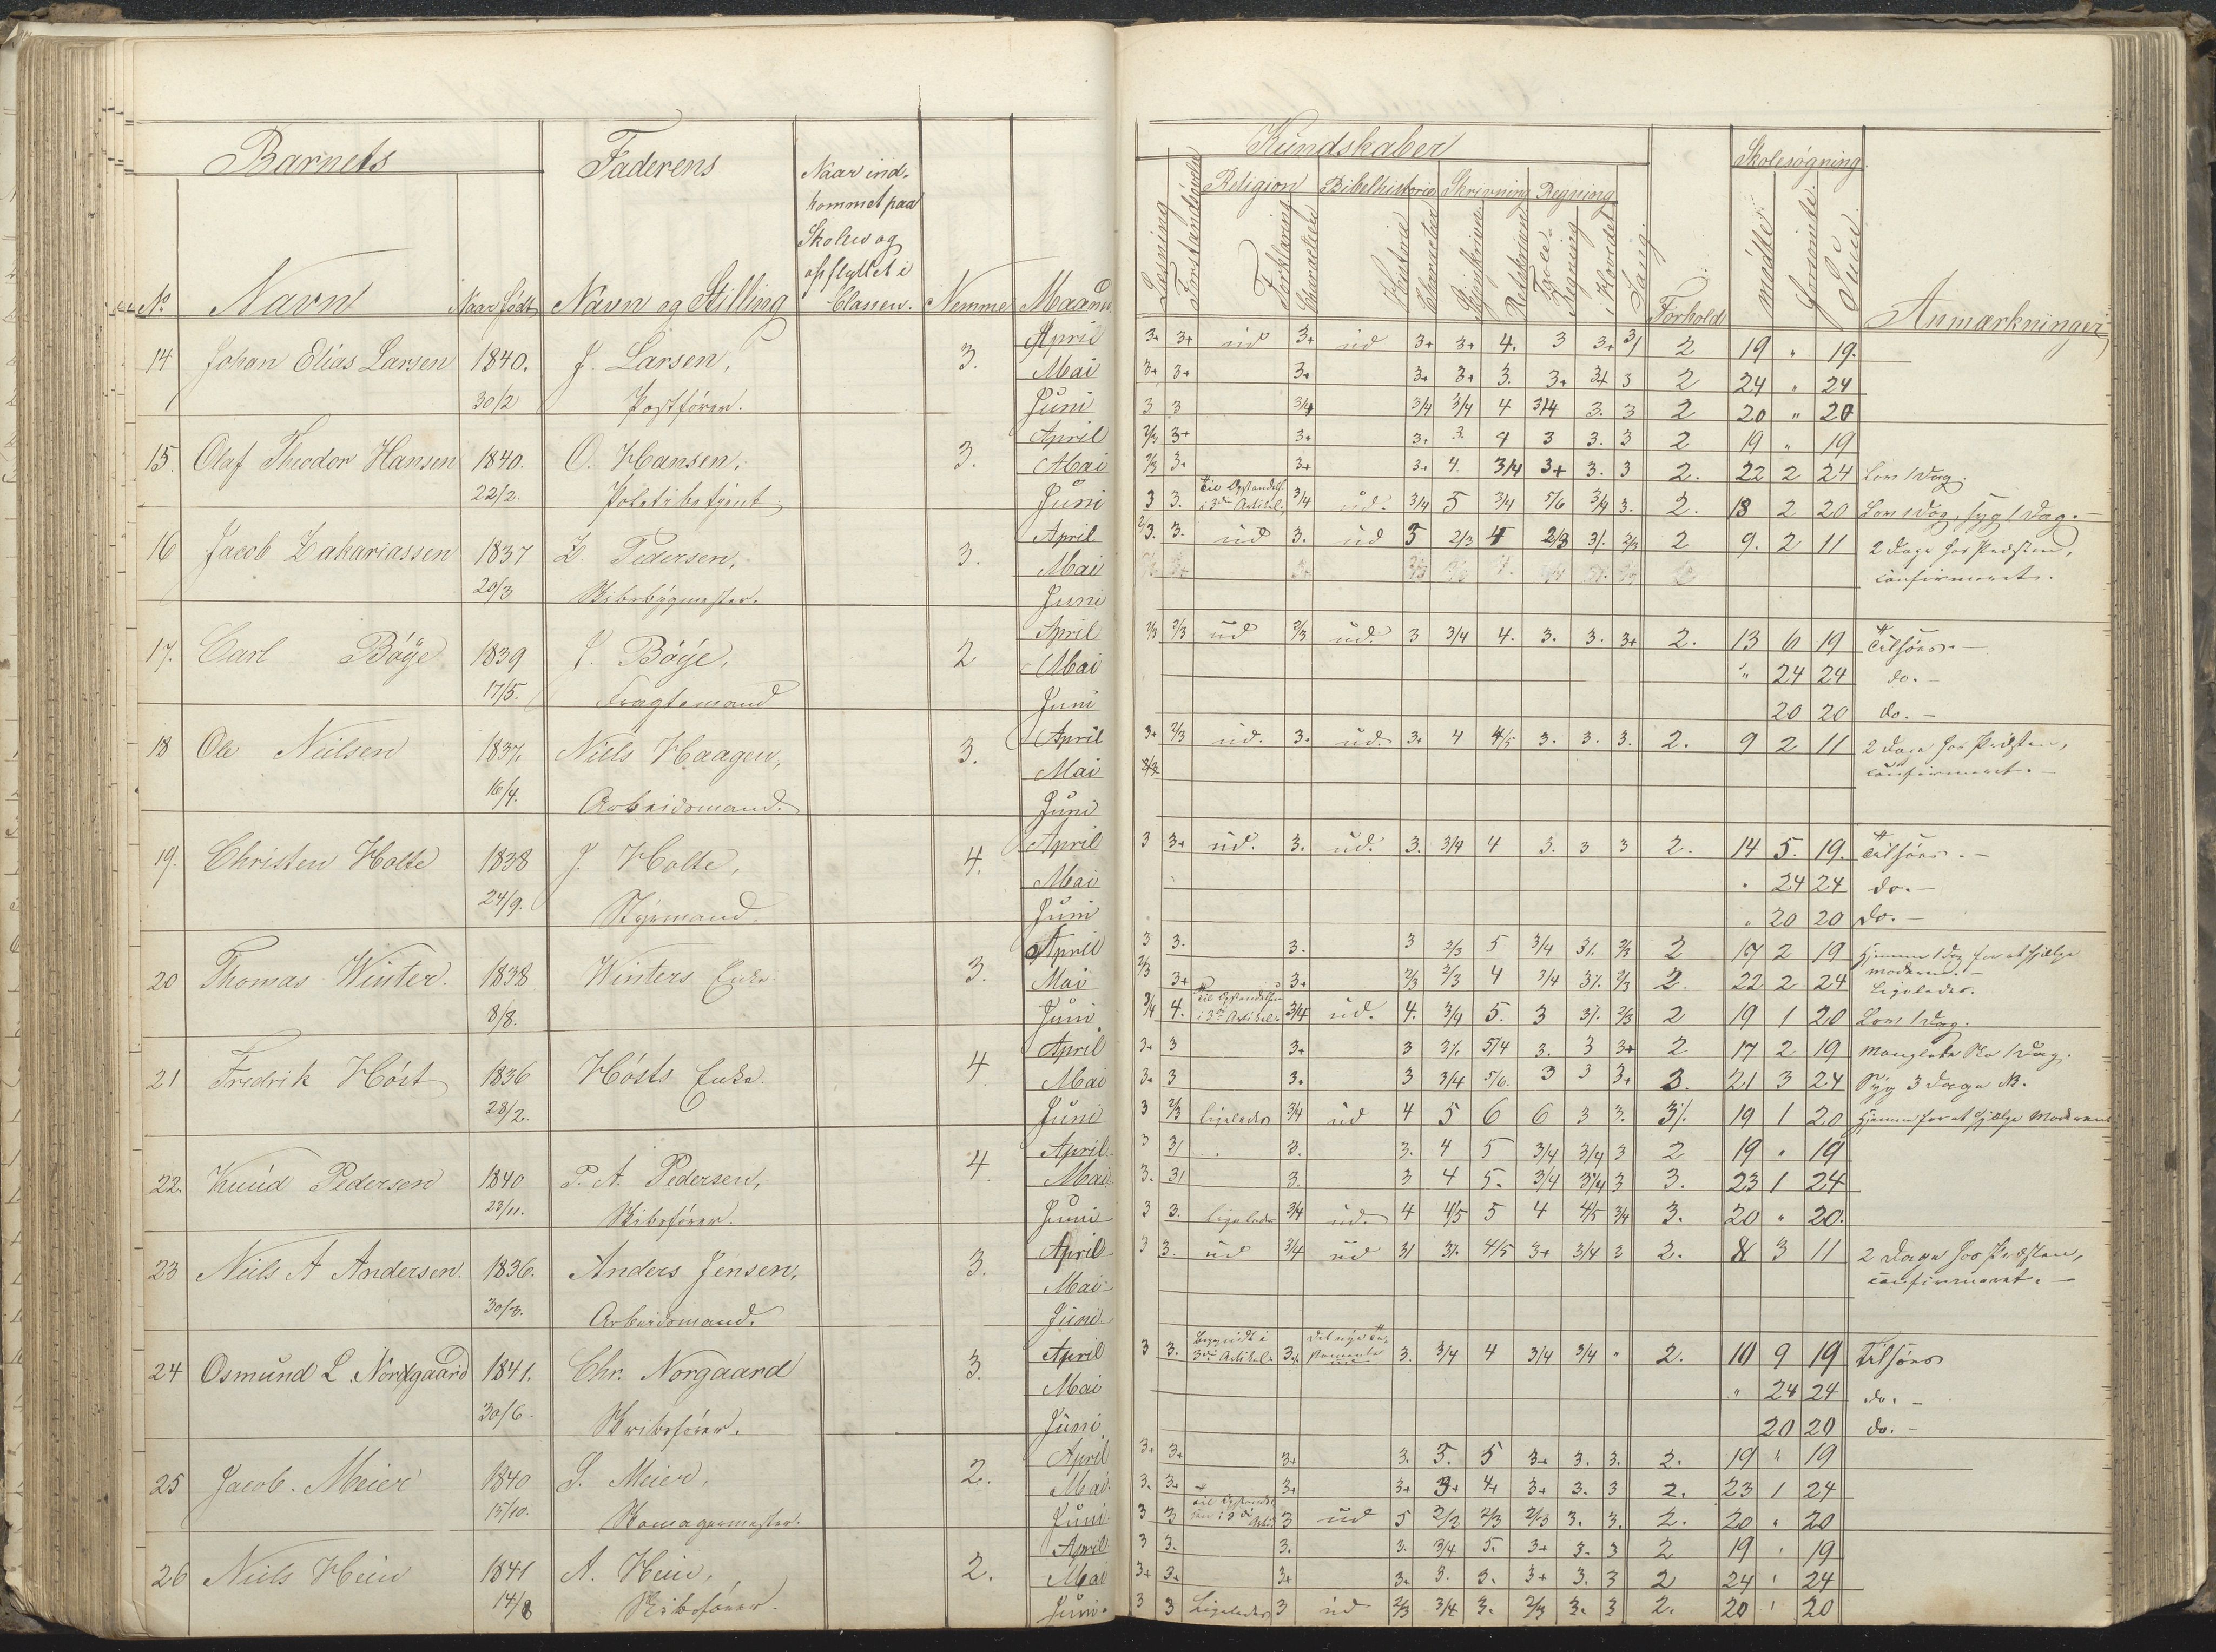 Barnets
Faderens
Naar ind-
kommet paa
Skolen og
opflyttet i
Classen.
No. Navn Naar født Navn og Stilling Nemme Maaned
14 Johan Elias Larsen 1840. J. Larsen, 3. April
Mai
30/2 Postfører. Juni
15. Olaf Theodor Hansen 1840. O. Hansen, 3. April
Mai
22/2. Politibetjent Juni
16 Jacob Zakariassen 1837 Z. Pedersen, 3. April
Mai
20/3 Skibsbygmester. Juni
17. Carl Böÿe 1839 J. Böÿe, 2 April
Mai
17/5. Fragtemand Juni
18 Ole Nielsen 1837. Niels Haagen, 3. April
Mai
16/4. Arbeidsmand. Juni
19. Christen Holte 1838 J. Holte, 4. April
Mai
24/9. Styrmand. Juni
20 Thomas Winter. 1838 Winters Enke. 3. April
Mai
8/8. Juni
21 Fredrik Høst 1836 Høsts Enke. 4. April
Mai
28/2. Juni
22. Knud Pedersen 1840 P. A. Pedersen, 4 April
Mai
23/11. Skibsfører. Juni
23 Niels A Andersen. 1836. Anders Jensen, 3. April
Mai
30/3. Arbeidsmand. Juni
24 Osmund L. Nordgaard 1841. Chr. Norgaard 3. April
Mai
30/6. Skibsfører. Juni
25 Jacob Meier 1840 S. Meier, 2. April
Mai
15/10. Skomagermester. Juni
26 Niels Heie 1841 A. Heie, 2. April
Mai
14/8 Skibsfører. Juni
Kundskaber
Skolesøgning.
Religion Bibelhistorie Skrivning Regning
Læsning
Forstandsøvelse
Forklaring
Historie
Skjønskrivn.
Retskrivn.
Tavle-
Regning
i Hovedet
Sang.
Forhold
mødte.
forsømte.
Sum.
Anmærkninger
3+ 3+ ud 3+ ud 3+ 3+ 4. 3 3+ 3/ 2 19 " 19.
3+ 3+ 3+ 3+ 3+ 3. 3+ 3+ 3 2 24 " 24
3 3 3/4 3/4 3/4 4 3/4 3. 3 2 20 " 20
2/3 3+ 3+ 3+ 3. 4 3 3. 3 2 19 " 19
2/3 3+ 3+ 3+ 4. 3/4 3+ 3. 3 2. 22 2 24 Lov 1 Dag.
3 3. Til Opstandels. i 3die Artikel. 3/4 ud. 3/4 5 3/4 5/6 3/4 3. 2. 18 2 20 Lov 1 Dag, syg 1 Dag.
2/3. 3. ud 3. ud 3 2/3 4 2/3 3/. 2/3 2 9. 2 11 2 Dage hos Præsten,
confirmeret.
2/3 2/3 ud 2/3 ud. 3 3/4 4. 3. 3. 3+ 2. 13 6 19 Tilsøes.
" 24 24 do.
20 20 do.
3+ 2/3 ud. 3. ud. 3+ 4 4/5 3. 3. 3. 2. 9 2 11 2 Dage hos Præsten,
confirmeret.
3 3+ ud. 3. ud. 3. 3/4 4 3. 3 3 2. 14 5. 19. Tilsøes.
" 24 24 do.
" 20 20 do.
3 3. 3. 3 2/3 5 3/4 3/. 2/3 2 17 2 19 Hjemme 1 Dag for at hjælpe
Moderen.
2/3 3+ 3+ 2/3 2/3 4 3/4 3/. 2/3 2. 22 2 24 Ligeledes.
3/4 4. Til Opstandelsen i 3die Artikel. 3/4 ud. 4. 3/4 5. 3 3/. 2/3 2 19 1 20 Lov 1 Dag.
3+ 3 3+ 3 3/. 5/4 3. 3 3+ 2 17 2 19 Manglede Sko 1 Dag.
3+ 3 3. 3 3/4 5/6. 3 3 3+ 3. 21 3 24 Syg 3 Dage
3 2/3 ligeledes 3/4 ud 4 5 6 6 3 3. 3/. 19 1 20 Hjemme for at hjælpe Moderen
3 3/ 3. 3. 4 5 3/4 3/4 3 2 19 " 19
3. 3/ 3. 3 4 5. 3/4 3/4 3 3. 23 1 24
3 3. ligeledes 3/4 ud. 4 4/5 5 4 4/5 3/4 3. 20 " 20.
3 3. ud 3/4 ud 3/ 3/. 4/5 3+ 3/4 3 2. 8 3 11 2 Dage hos Præsten,
confirmeret.
3 3. Begyndt i 3die Artikel. 3/. Det nye Te-
stamente 3. 3/4 4 3/4 3/4 " 2. 10 9 19 Tilsøes
" 24 24 do.
20 20 do.
3+ 3+ 3+ 3. 3. 5 3+ 3. 3. 2. 19 " 19
3. 3+ 3+ 3+ 3+ 4+ 3+ 3. 3 2. 23 1 24
3 3 Til Opstandelsen i 3die Arti. 3 ud 5 2/3 2/3 2/3 3. 3. 2. 20 " 20
3 3. 3. 3. 3/4 5. 3+ 3. 3 2 19 " 19
3+ 3+ 3+ 3+ 3. 3. 3+ 3. 3 2 24 " 24
3 3 Ligeledes 3 ud 2/3 3/4 3. 2/3 3. 3 2. 20 " 20